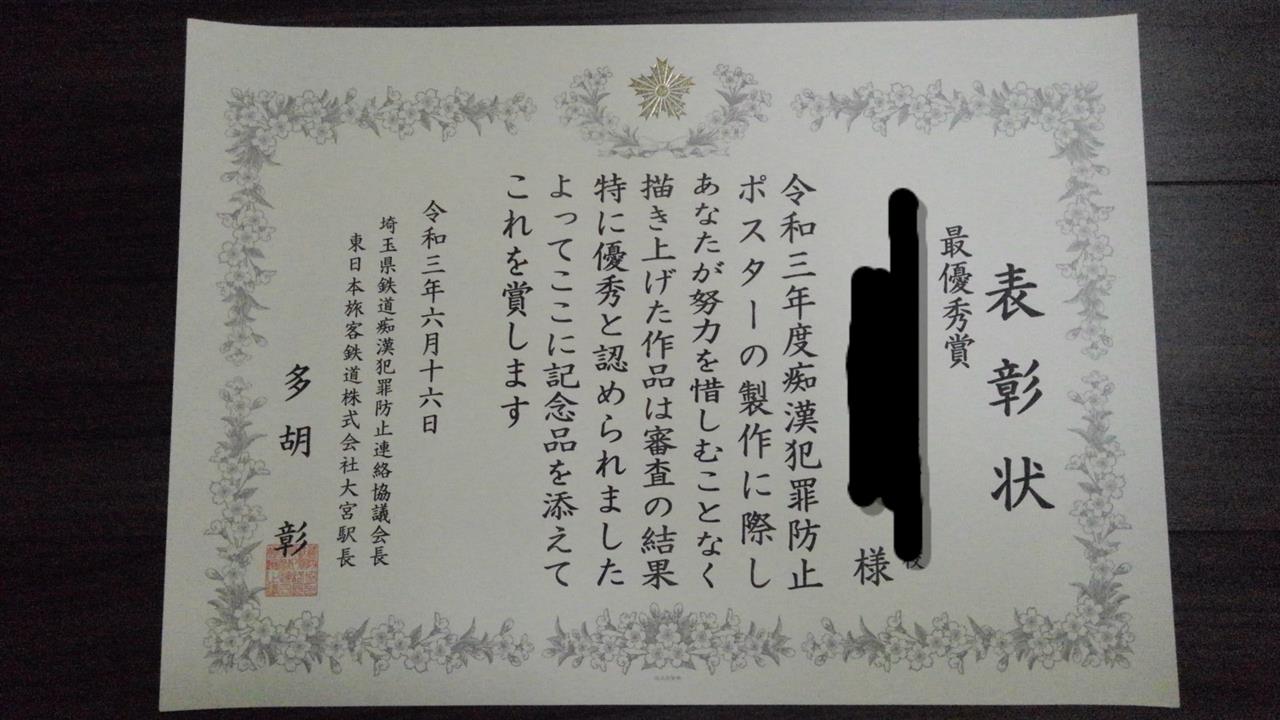 表彰状
最優秀賞
校
様
令和三年度痴漢犯罪防止
ポスターの製作に際し
あなたが努力を惜しむことなく
描き上げた作品は審査の結果
特に優秀と認められました
よってここに記念品を添えて
これを賞します
令和三年六月十六日
埼玉県鉄道痴漢犯罪防止連絡協議会長
東日本旅客鉄道株式会社大宮駅長
多胡 彰